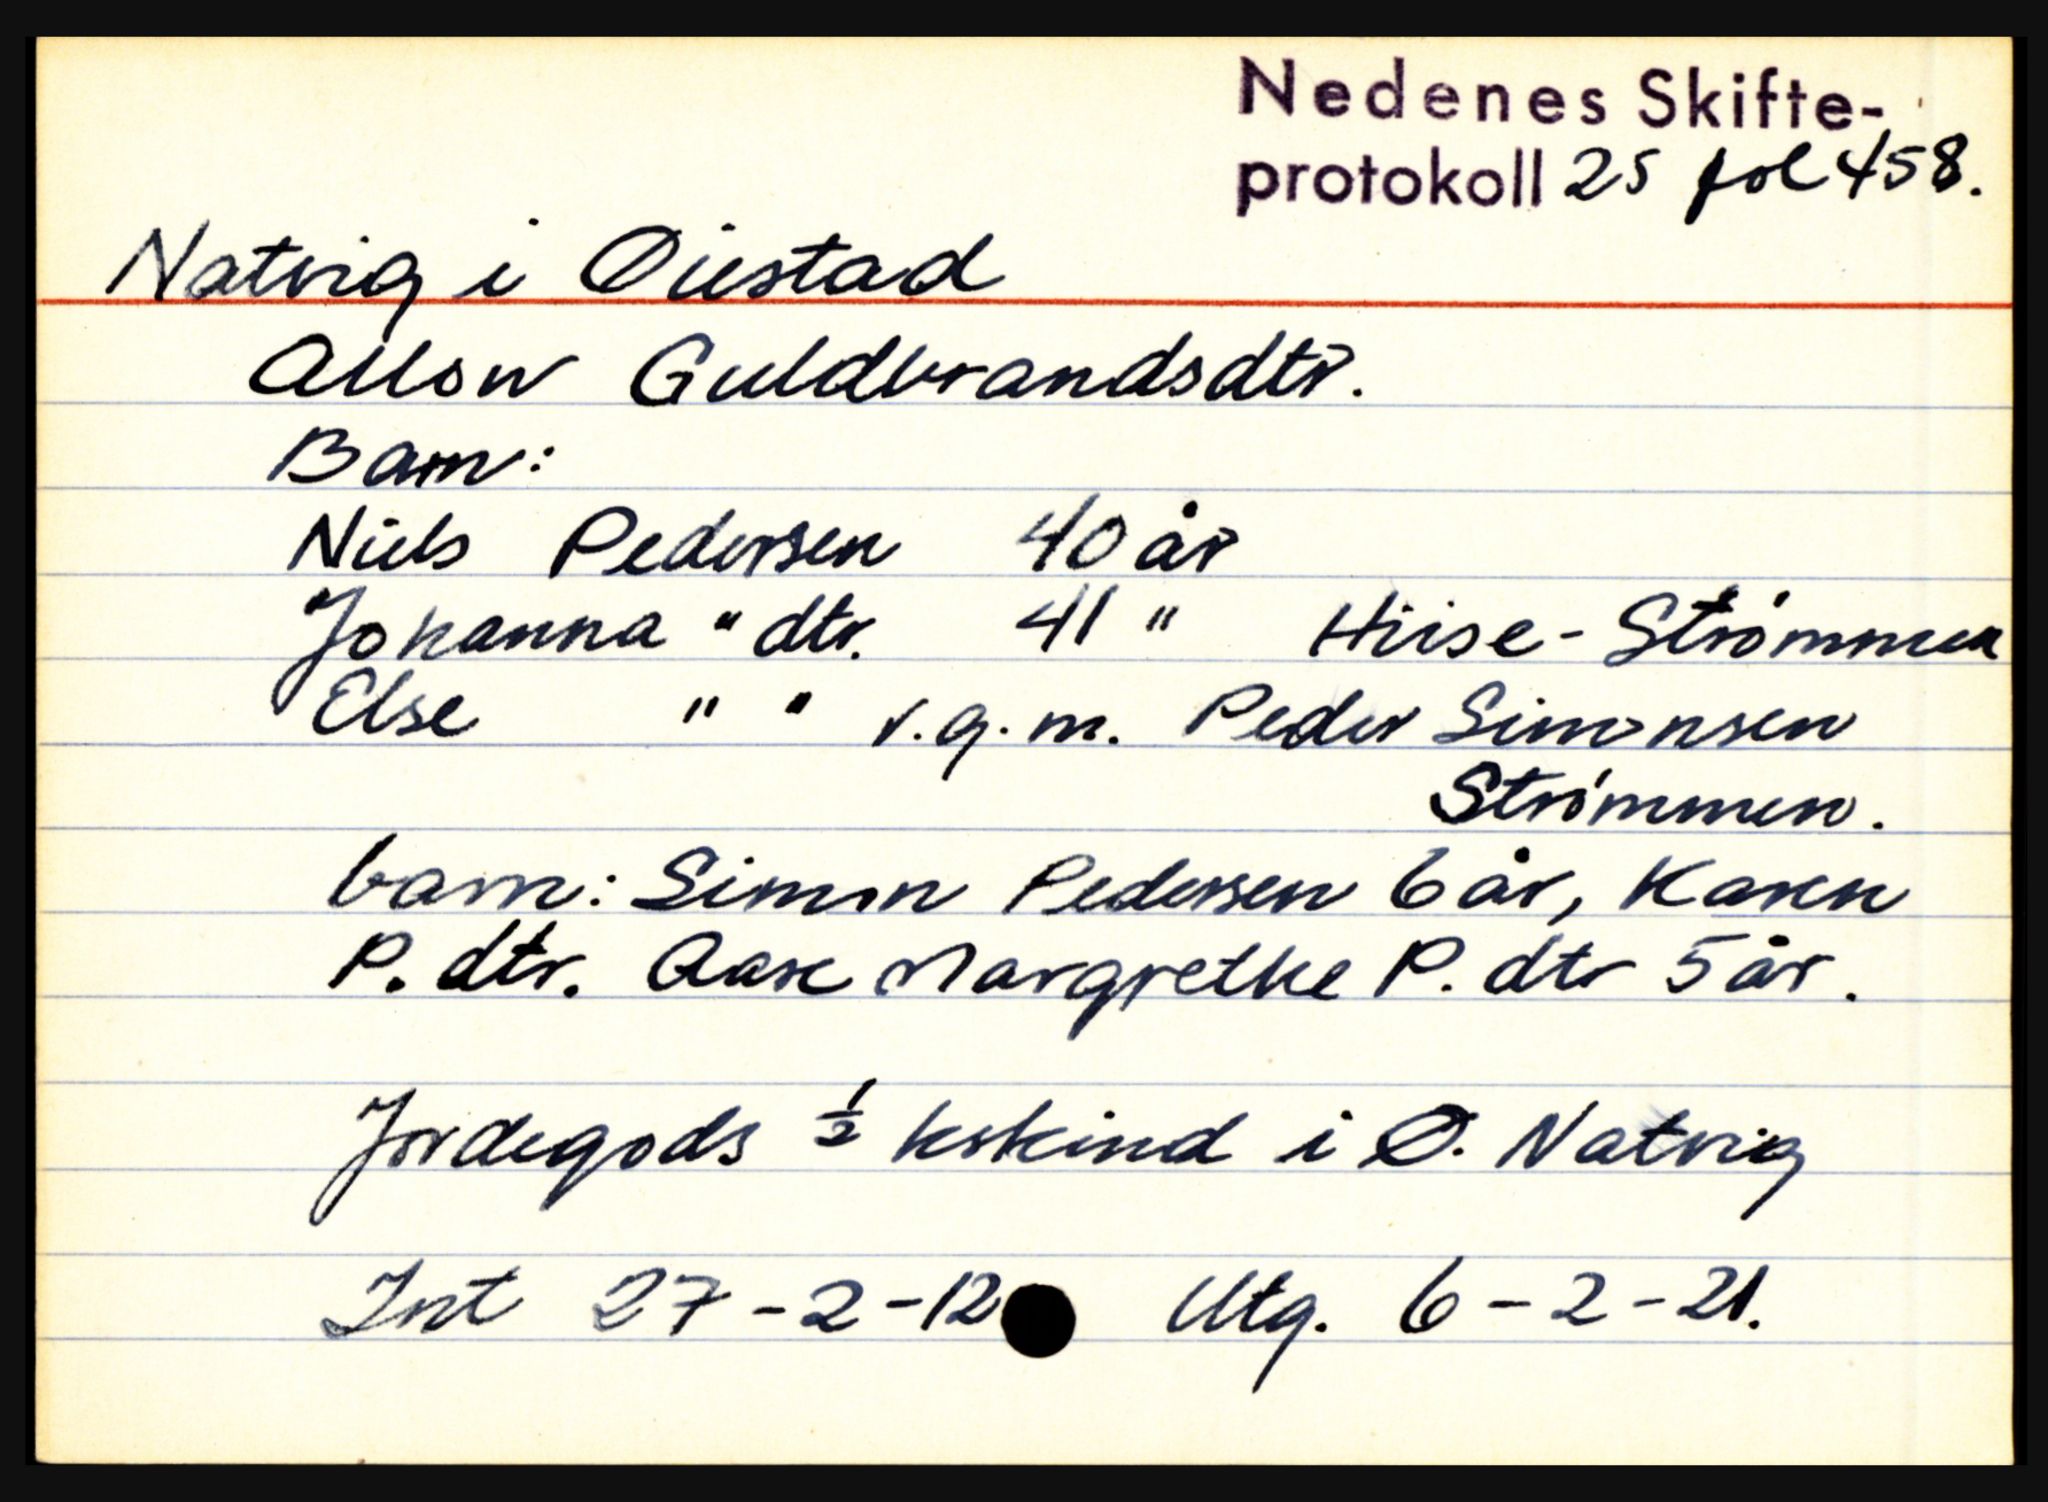 Nedenes Skifte-
protokoll 25 fol 458.
Natvig i Øiestad
Allow Guldbrandsdtr.
Barn:
Niels Pedersen 40 år
Johanna " dtr. 41 " Hiise-Strømmen
Else " " v.g.m. Peder Simonsen
Strømmen.
barn: Simon Pedersen 6 år, Karen
P. dtr. Aase Margrethe P. dtr 5 år.
Jordegods ½ kskind i Ø. Natvig
Int 27-2-12 Utg. 6-2-21.